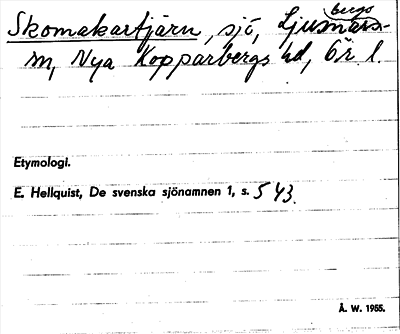 Skomakartjärn, sjö, Ljusnars-
bergs
sn, Nya Kopparbergs hd, Ör. l.
Etymologi.
E. Hellquist, De svenska sjönamnen 1, s. 543.
Å. W. 1955.